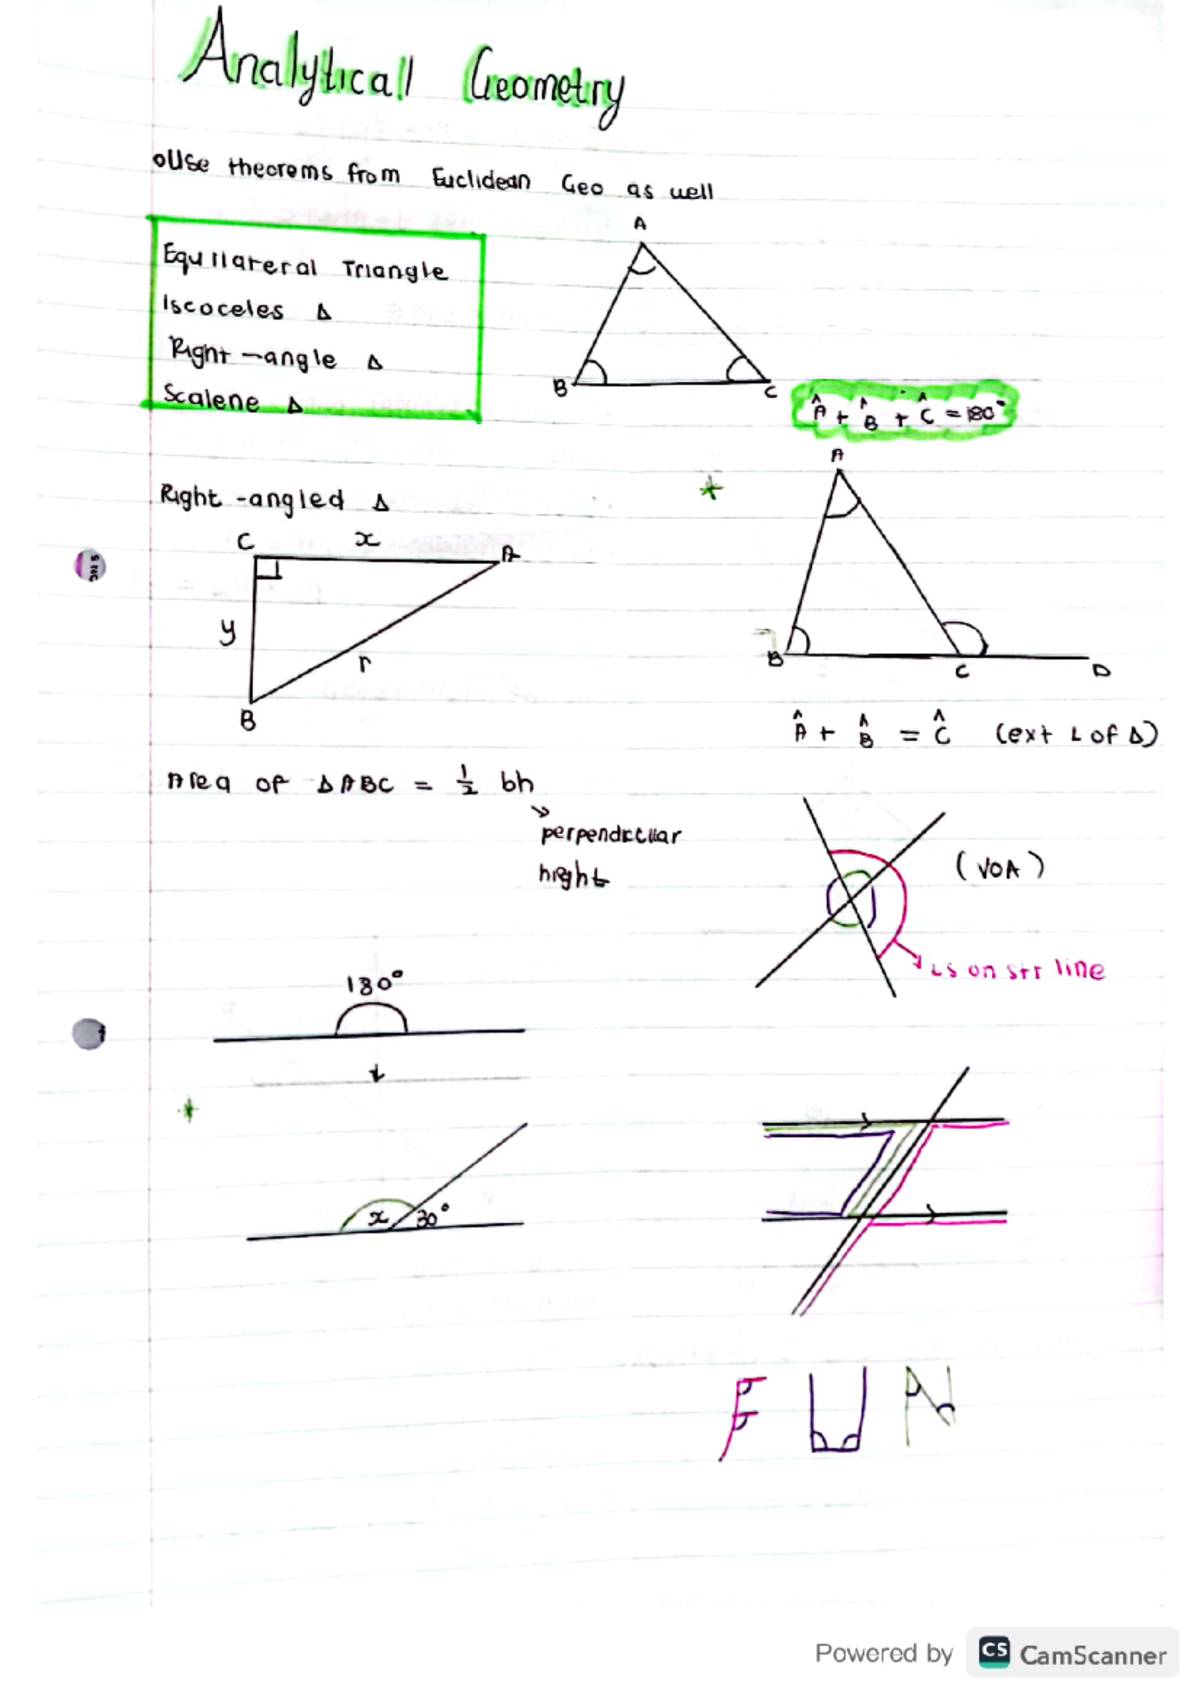 Analyticall Geometry
oUse theorems from Euclidean Geo as well
Equilateral Triangle
Iscoceles Δ
Right-angle Δ
Scalene Δ
A
B
C
Â + B̂ + Ĉ = 180°
Right-angled Δ
C
x
A
y
r
B
A
B
C
D
Â + B̂ = Ĉ (ext ∠ of Δ)
Area of ΔABC = ½ bh
perpendicular
hieght
(VOA)
∠s on str line
180°
x 30°
F U N
Powered by CS CamScanner